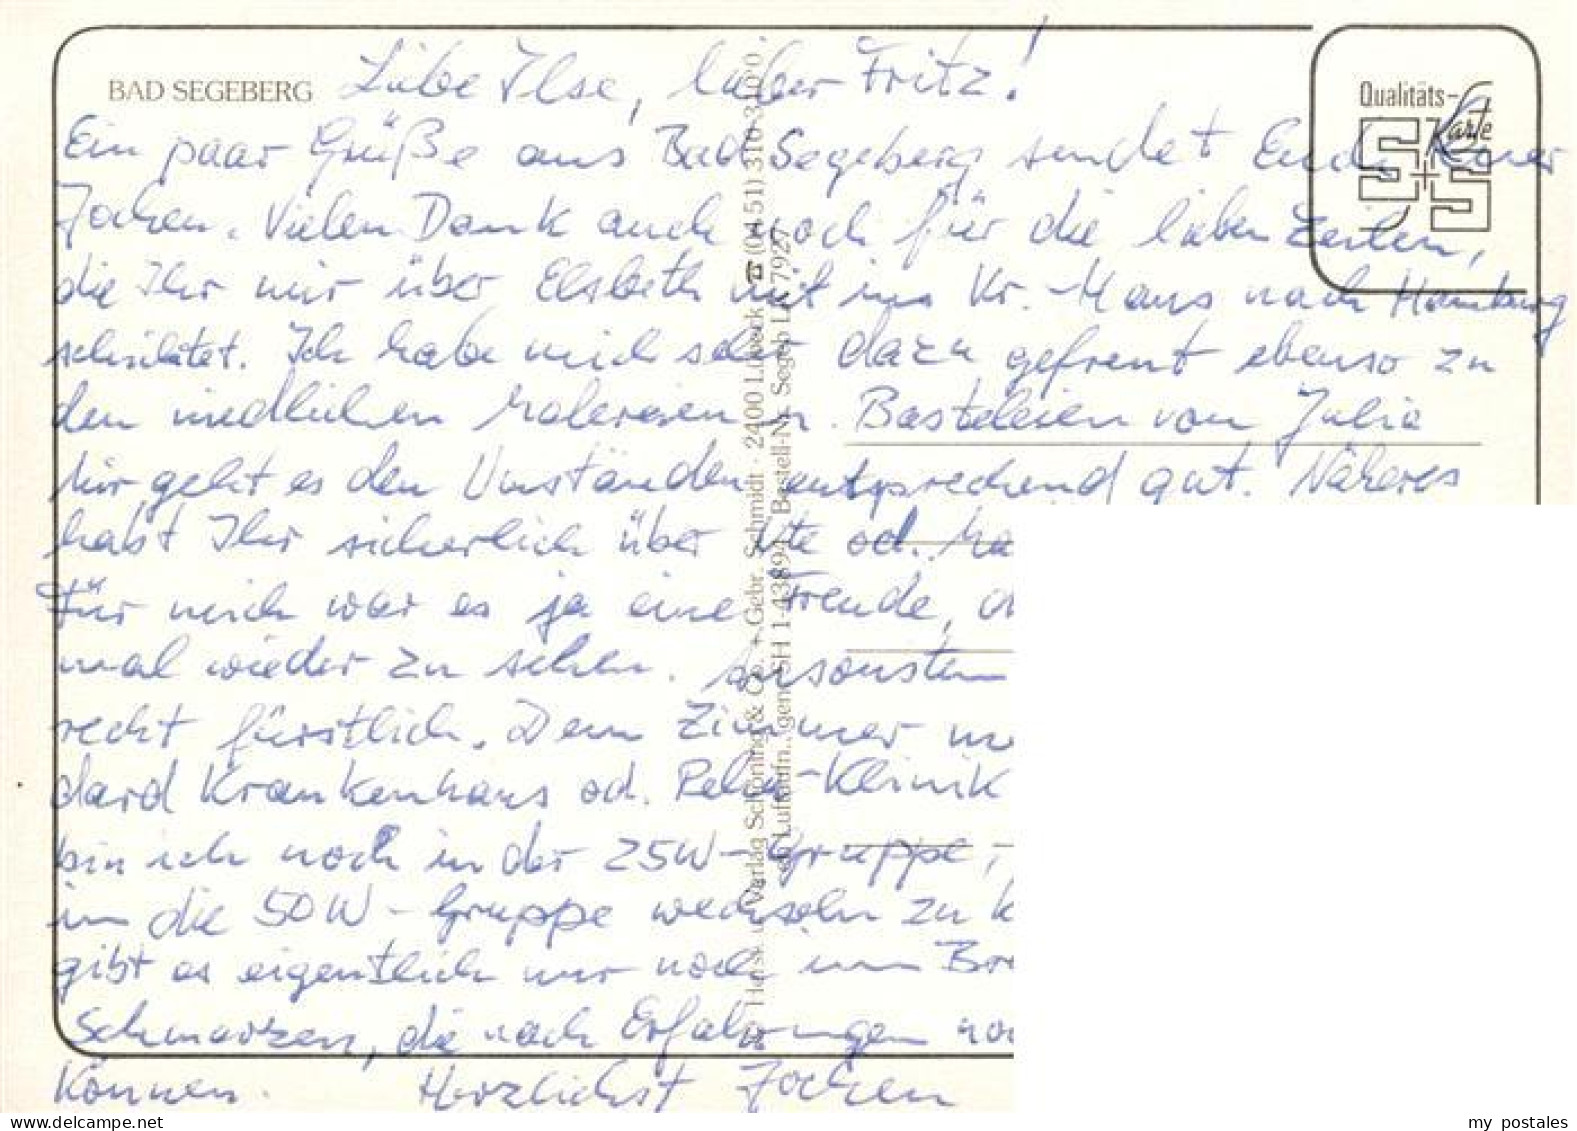 BAD SEGEBERG
Liebe Ilse, lieber Fritz!
Qualitäts-
Karte
S+S
Ein paar Grüße aus Bad Segeberg sendet Euch Euer
Jochen. Vielen Dank auch noch für die lieben Zeilen,
die Ihr mir über Elsbeth mit ins Kr.-Haus nach Hamburg
schicktet. Ich habe mich sehr dazu gefreut ebenso zu
den niedlichen Malereien u. Basteleien von Julia
Mir geht es den Umständen entsprechend gut. Näheres
habt Ihr sicherlich über Ute od.
Für mich war es ja eine Freude,
mal wieder zu sehen. Ansonsten
recht fürstlich. Denn Zimmer
dard Krankenhaus od. Reha-Klinik
bin ich noch in der 25W-Gruppe,
um die 50W-Gruppe wechseln zu
gibt es eigentlich nur noch im
Schmerzen, die nach Erfahrungen
können. Herzlichst Jochen
Verlag Schöning & Co. + Gebr. Schmidt · 2400 Lübeck ☎ (04 51) 3 10 3 10
Luftaufn. gen. SH 1-43894 Bestell-Nr. Segeb 7927
my postales